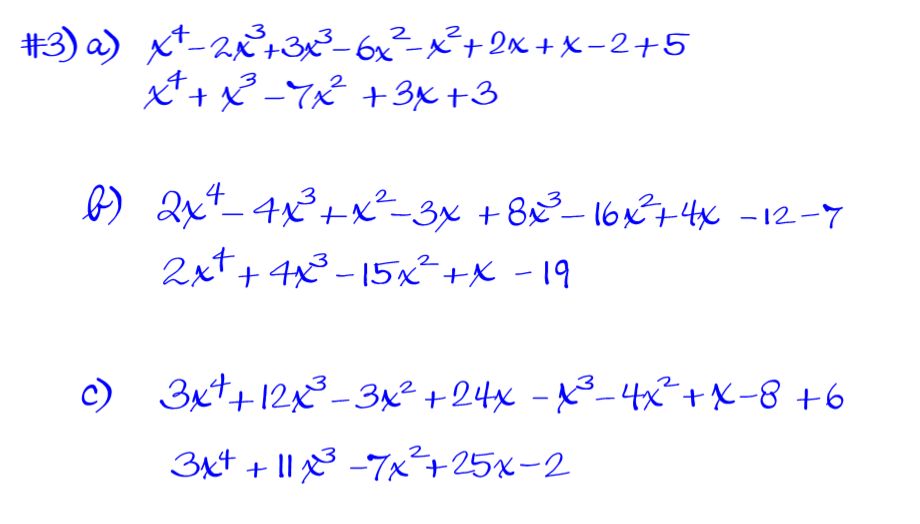 #3) a) x⁴-2x³+3x³-6x²-x²+2x+x-2+5
x⁴+x³-7x²+3x+3
b) 2x⁴-4x³+x²-3x+8x³-16x²+4x-12-7
2x⁴+4x³-15x²+x-19
c) 3x⁴+12x³-3x²+24x-x³-4x²+x-8+6
3x⁴+11x³-7x²+25x-2